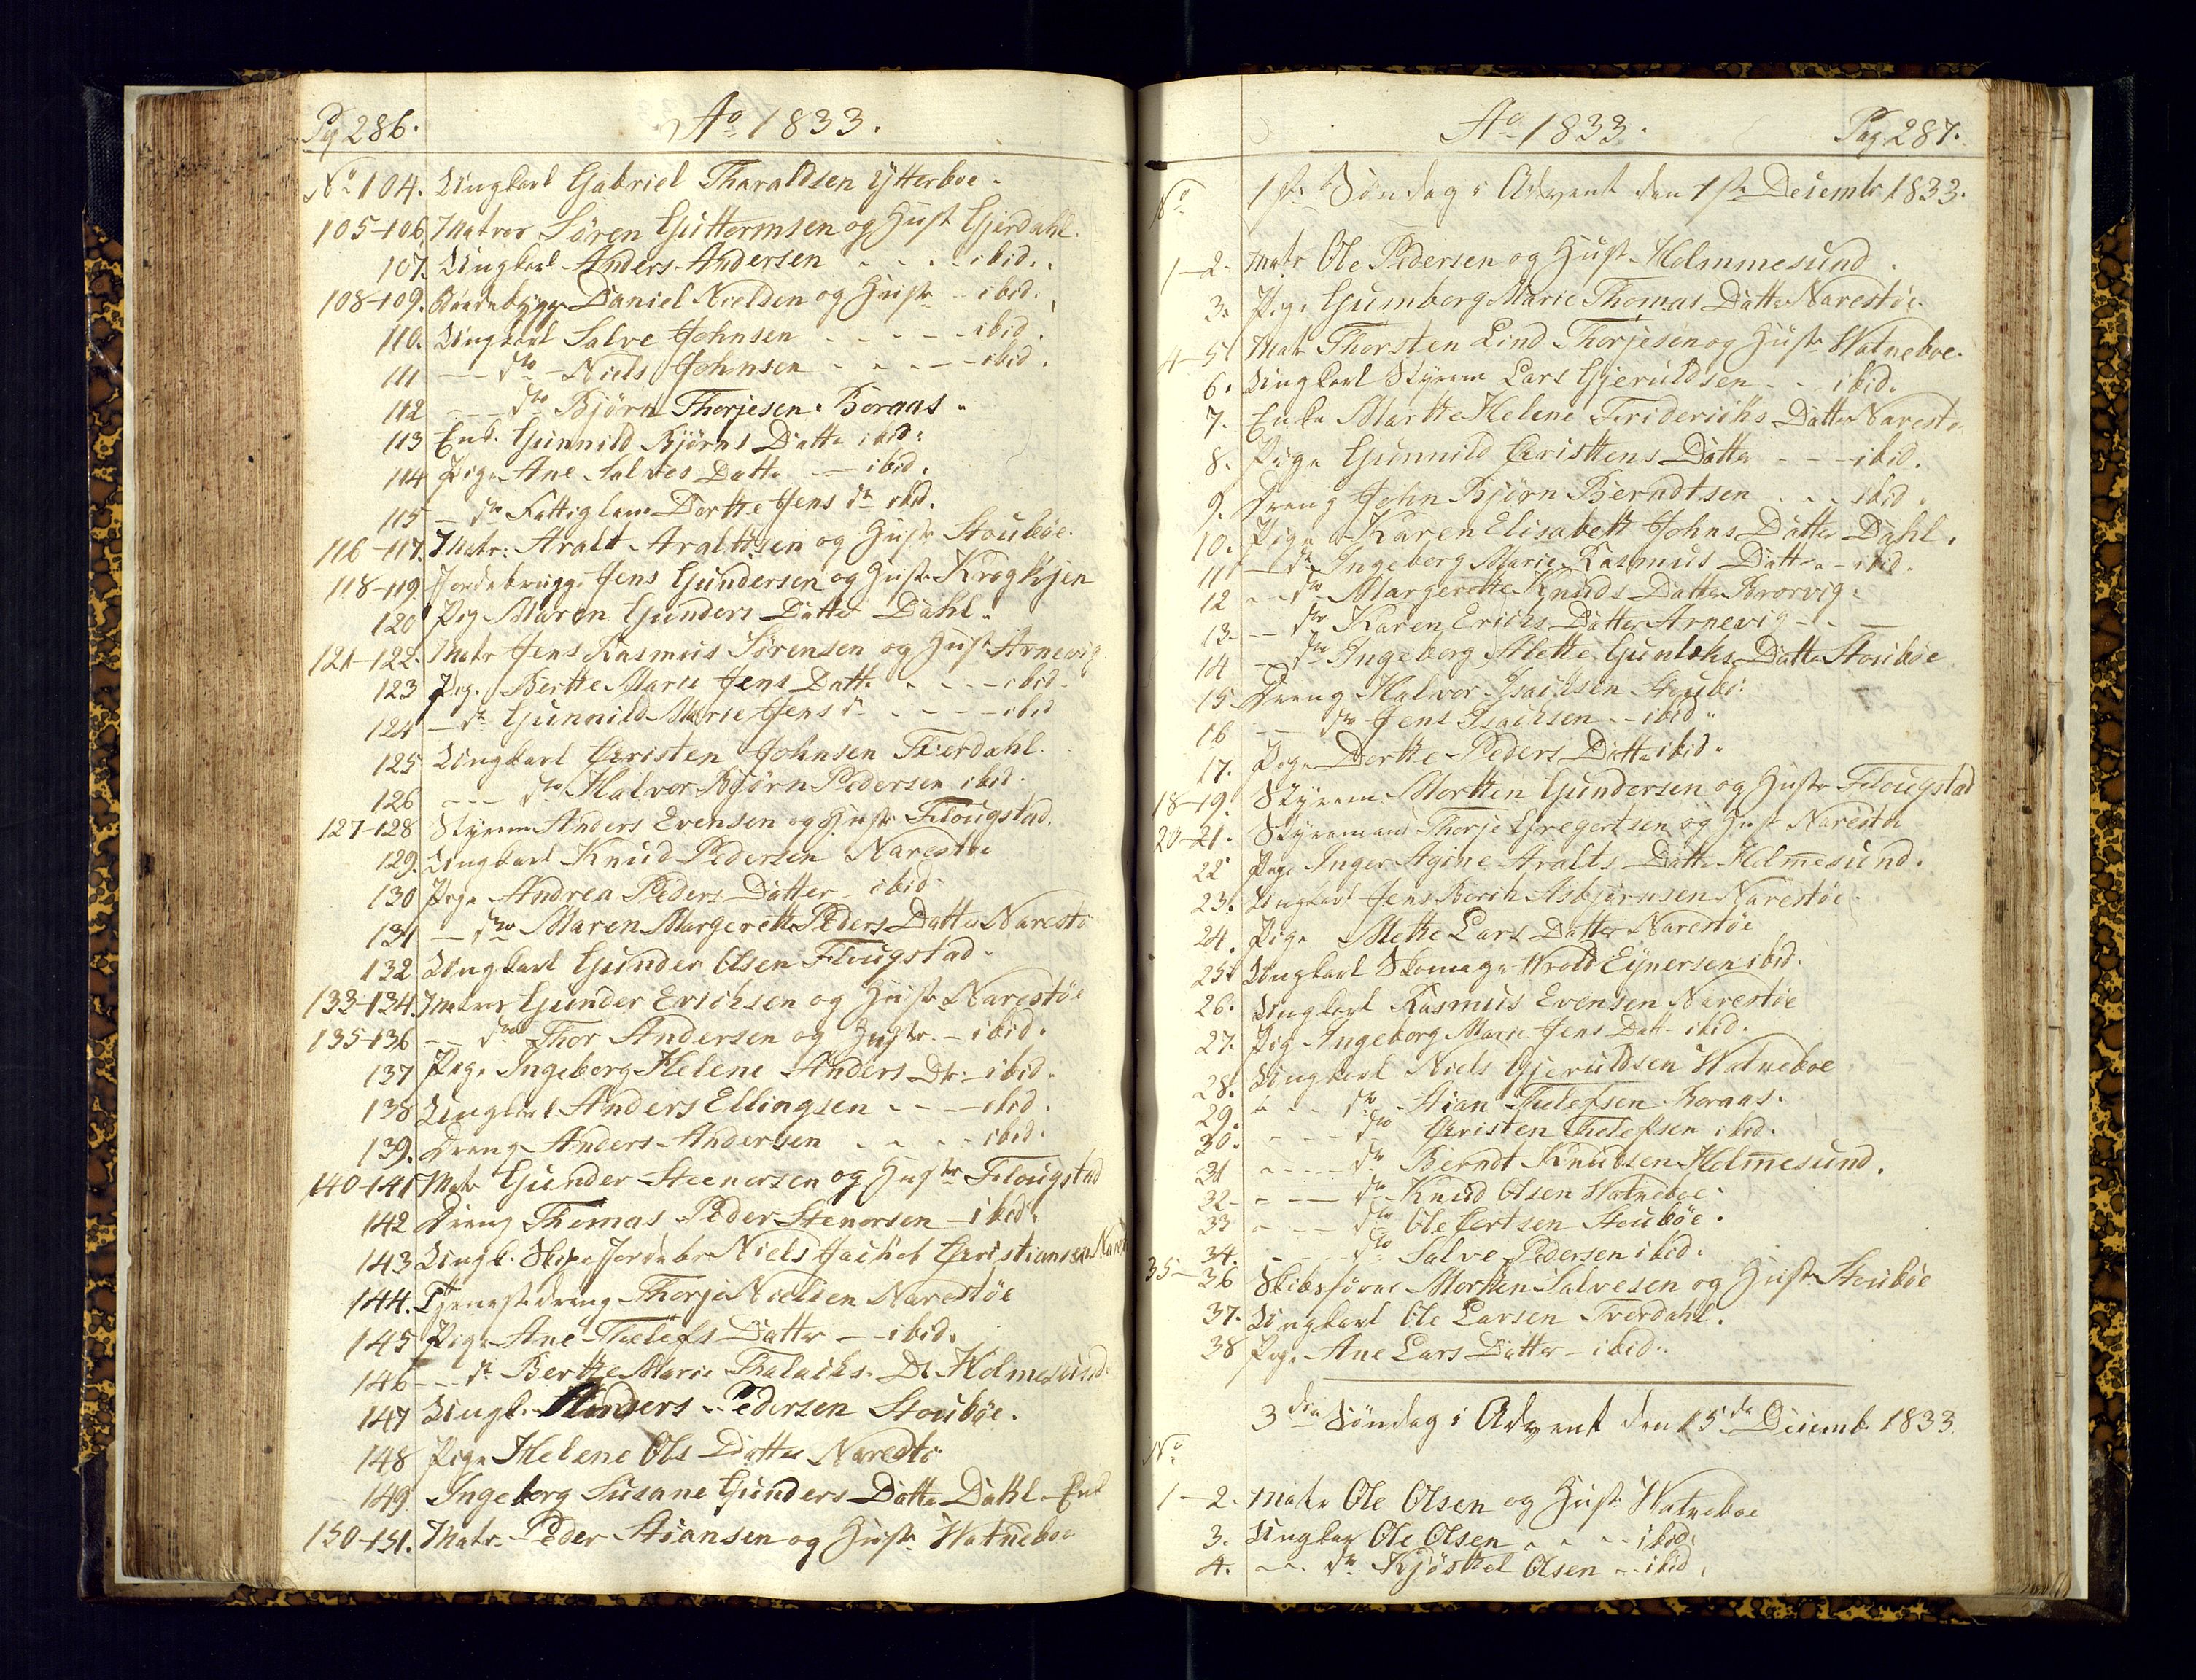 Pg 286. Ao 1833.
No 104. Ungkarl Gabriel Tharaldsen Ytterboe.
105-106. Matros Søren Guttormsen og Hust. Gjerdahl.
107. Ungkarl Anders Andersen - - - - ibid.
108-109. Daniel Nielsen og Hustr - ibid.
110. Ungkarl Salve Johnsen - - - - ibid.
111 - - do - Niels Johnsen - - - - ibid.
112 - - - do Bjørn Thorjesen. Boraas.
113 Enk. Gunnild Bjørns Datte ibid.
114 Pige Ane Salves Datte - - ibid.
115 - do Fattiglem Dortte Jens dr ibid.
116-117. Matr: Aralt Araltsen og Hustr Stoubøe.
118-119 Jordebrugg. Jens Gundersen og Hustr Krogkjen
120 Pig. Maren Gunders Datter Dahl.
121-122. Matr Jens Rasmus Sørensen og Hust Arnevig
123 Pig. Bertte Marie Jens Datte - - - ibid
124 - dr Gunnild Marie Jens d. - - - - ibid
125 Ungkarl Cristen Johnsen Tverdahl.
126 - - - do Halvor Bjørn Pedersen ibid.
127-128 Styrem Anders Evensen og Hustr Flougstad.
129. Ungkarl Knud Pedersen Narestøe
130 Pige Andrea Peders Datter - ibid.
131 - do Maren Margerette Peders Datter Naresto
132 Ungkarl Gunder Olsen Flougstad.
133-134. Matros Gunder Erichsen og Hustr Narestøe
135-136 - - do Thor Andersen og Hustr - ibid.
137 Pige Ingeborg Helene Anders Dtr - ibid.
138 Ungkarl Anders Ellingsen - - - ibid.
139. Dreng Anders Andersen - - - - ibid.
140-141 Matr Gunder Steenersen og Hustr Flougstad
142 Dreng Thomas Peder Stenersen - ibid.
143 Ungk. Niels Jachob Cristiansen Nares
144. Tjenestedreng Thorje Nielsen Narestøe
145 Pige Ane Thelefs Datter - - ibid.
146 - - dr Bertte Marie Dt Holmesund.
147 Ungk. Anders Pedersen Stoubøe.
148 Pige Helene Ols Datter Narestø
149 Ingeborg Susane Gunders Datte Dahl. Enk
150-151. Matr. Peder Stiansen og Hustr Watneboe
Ao 1833. Pag 287.
No 1ste Søndag i Advent den 1ste Decembr 1833.
1-2. Matr Ole Pedersen og Hustr Holmmesund.
3. Pige Gumborg Marie Thomas Datte Narestøe.
4-5. Matr Thorsten Lind Thorjesen og Hustr Watneboe.
6. Ungkarl Styrem Lars Gjeruldsen - - ibid.
7. Enke Martte Helene Friderichs Datter Naresto
8. Pige Gunnild Cristtens Datter - - - ibid.
9. Dreng John Bjørn Berndtsen - - - ibid.
10. Pige Karen Elisabett Johns Datter Dahl.
11 - dr Ingeborg Marie Rasmus Datter - ibid.
12 - - do Margerette Knuds Datter Brorvig.
13. - - do Karen Erichs Datter Arnevig - - -
14 - do Ingeborg Alette Gunleks Datte Stoubøe
15 Dreng Halvor Isachsen Stoubø.
16 - - do Jens Isachsen - - ibid.
17. Pige Dortte Peders Datte ibid.
18-19. Styrem Mortten Gundersen og Hustr Flougstad
20-21. Styremand Thorje Gregertsen og Hust Narestø
22 Pige Inger Agine Aralts Datte Holmesund.
23. Ungkarl Jens Borch Asbjørnsen Narestøe.
24. Pige Mette Lars Datter Narestøe
25 Ungkarl Skomage Wrold Eynersen ibid.
26. Ungkarl Rasmus Evensen Narestøe
27. Pig Ingeborg Marie Jens Datt - ibid.
28. Ungkarl Niels Gjeruldsen Watneboe
29. - - - do Stian Thelefsen Boraas.
30. - - - do Cristen Thelefsen ibid.
31 - - - - do Berndt Knudsen Holmesund.
32 - - - do Knud Olsen Watneboe.
33 - - - do Ole Certsen Stoubøe.
34. - - - do Salve Pedersen ibid.
35-36 Skibsfører Mortten Salvesen og Hustr Stoubøe
37. Ungkarl Ole Larsen Tverdahl.
38 Pige Ane Lars Datter - ibid.
3die Søndag i Advent den 15de Decemb. 1833.
No
1-2. Matr Ole Olsen og Hustr Watneboe
3. Ungkar Ole Olsen - - - - ibid.
4. - - - do Kjøstel Olsen - - ibid.